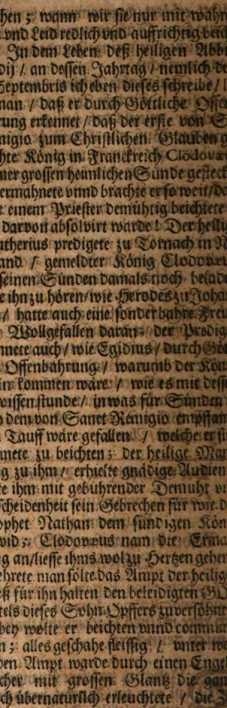 hen; wann wir sie nur mit wahr
vnd Leid redlich vnd auffrichtig beich
In dem Leben deß heiligen Abbt
dij / an dessen Jahrtag / nemlich de
Septembris ich eben dieses schreibe / l
man / daß er durch Göttliche Offen
rung erkennet / daß der erste von S
nigio zum Christlichen Glauben g
hte König in Franckreich Clodovæ
ner grossen heimlichen Sünde gesteck
ermahnete vnnd brachte er so weit / da
einem Priester demühtig beichtete
darvon absolvirt warde! Der heilig
utherius predigete zu Tornach in N
and / gemeldter König Clodovæus
seinen Sünden damals noch belad
e ihn zu hören / wie Herodes zu Joha
/ hatte auch eine sonderbahre Freu
Wollgefallen daran: der Predig
nnete auch / wie Egidius / durch Göt
Offenbahrung / warumb der Kön
in kommen wäre / wie es mit dess
wissen stunde / in was für Sünden
dem von Sanct Remigio empfan
Tauff wäre gefallen / welche er si
nete zu beichten: der heilige Man
g zu ihm / erhielte gnädige Audien
te ihm mit gebührender Demuht v
scheidenheit sein Gebrechen für wie d
ophet Nathan dem sündigen Kön
vid; Clodovæus die Erma
g an / liesse ihms wol zu Hertzen gehen
ehrete man solte das Ampt der heilig
eß für ihn halten den beleidigten GO
tels dieses Sohn-Opffers zu versöhne
bey wolte er beichten vnnd commu
n; alles geschahe fleissig / vnter w
hen Ampt warde durch einen Engel
cher mit grossen Glantz die gan
ch übernatürlich erleuchtete / die